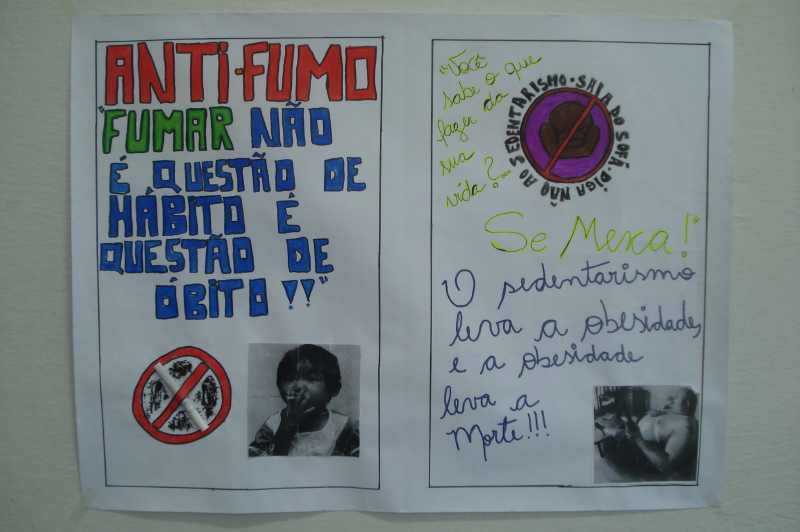 ANTI-FUMO
"FUMAR NÃO
É QUESTÃO DE
HÁBITO É
QUESTÃO DE
ÓBITO!!"
"Você
sabe o que
fazer da
sua
vida?...
SAIA DO SOFÁ. DIGA NÃO AO SEDENTARISMO.
Se Mexa!"
O sedentarismo
leva a obesidade,
e a obesidade
leva a
Morte!!!